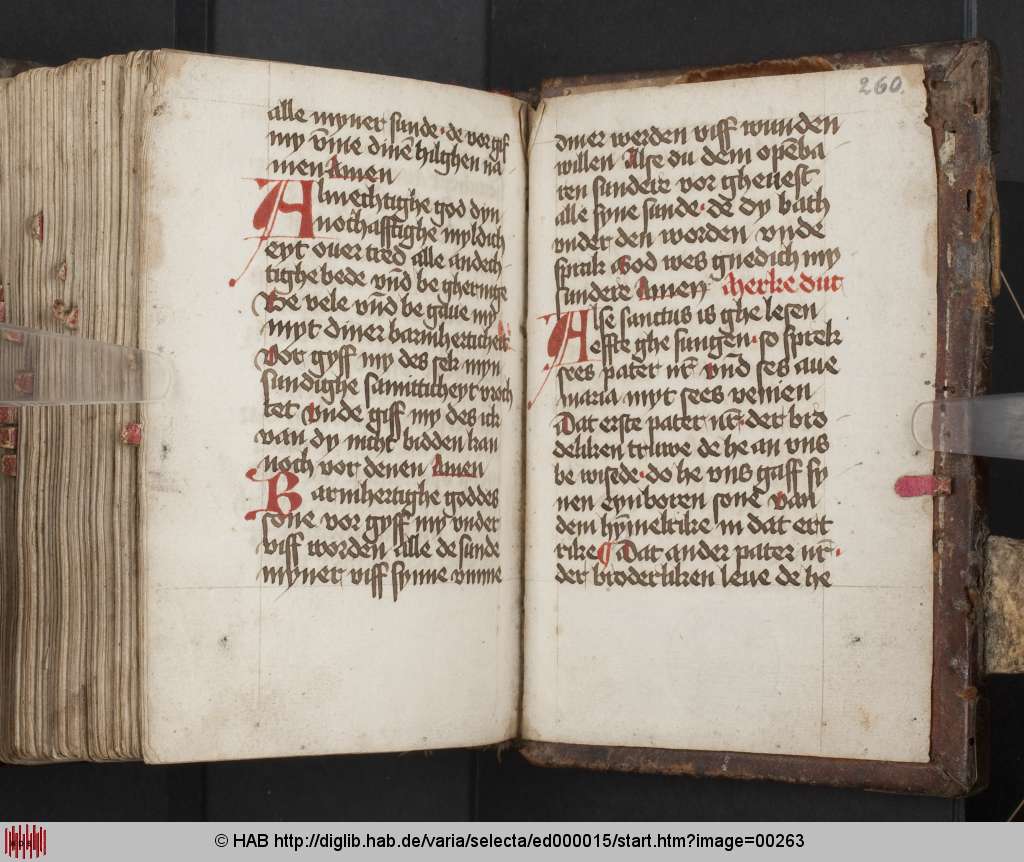 alle myner sunde · de vor gyf
my v̄me dinē hilghen na
men Amen
Almechtighe god dyn
nochafftighe myldich
eyt ouer tred alle andech
tighe bede vnd be gheringe
Be vele vnd be gaue my
myt diner barmherticheit
vor gyff my des sek myn
sundighe
let vnde giff my des ick
van dy nicht bidden kan
noch vor denen Amen
Barmhertighe goddes
sone vor gyff my vnder
viff worden alle de sunde
myner viff synne vmme
260.
diner werden viff wunden
willen Alse du dem opēba
ren sundere vor gheuest
alle syne sunde · de dy bath
vnder den worden vnde
sprak God wes gnedich my
sundere Amen Merke dut
Alse sanctus is ghe lesen
effte ghe sungen · so sprek
sees pater nr̄ vnd ses aue
maria myt sees venien
Dat erste pater nr̄ · der bro
deliken truwe de he an vns
be wisede · do he vns gaff sy
nen eynboren sone van
dem hȳmelrike in dat ert
rike ¶ Dat ander pater nr̄ ·
der broderliken leue de he
© HAB http://diglib.hab.de/varia/selecta/ed000015/start.htm?image=00263